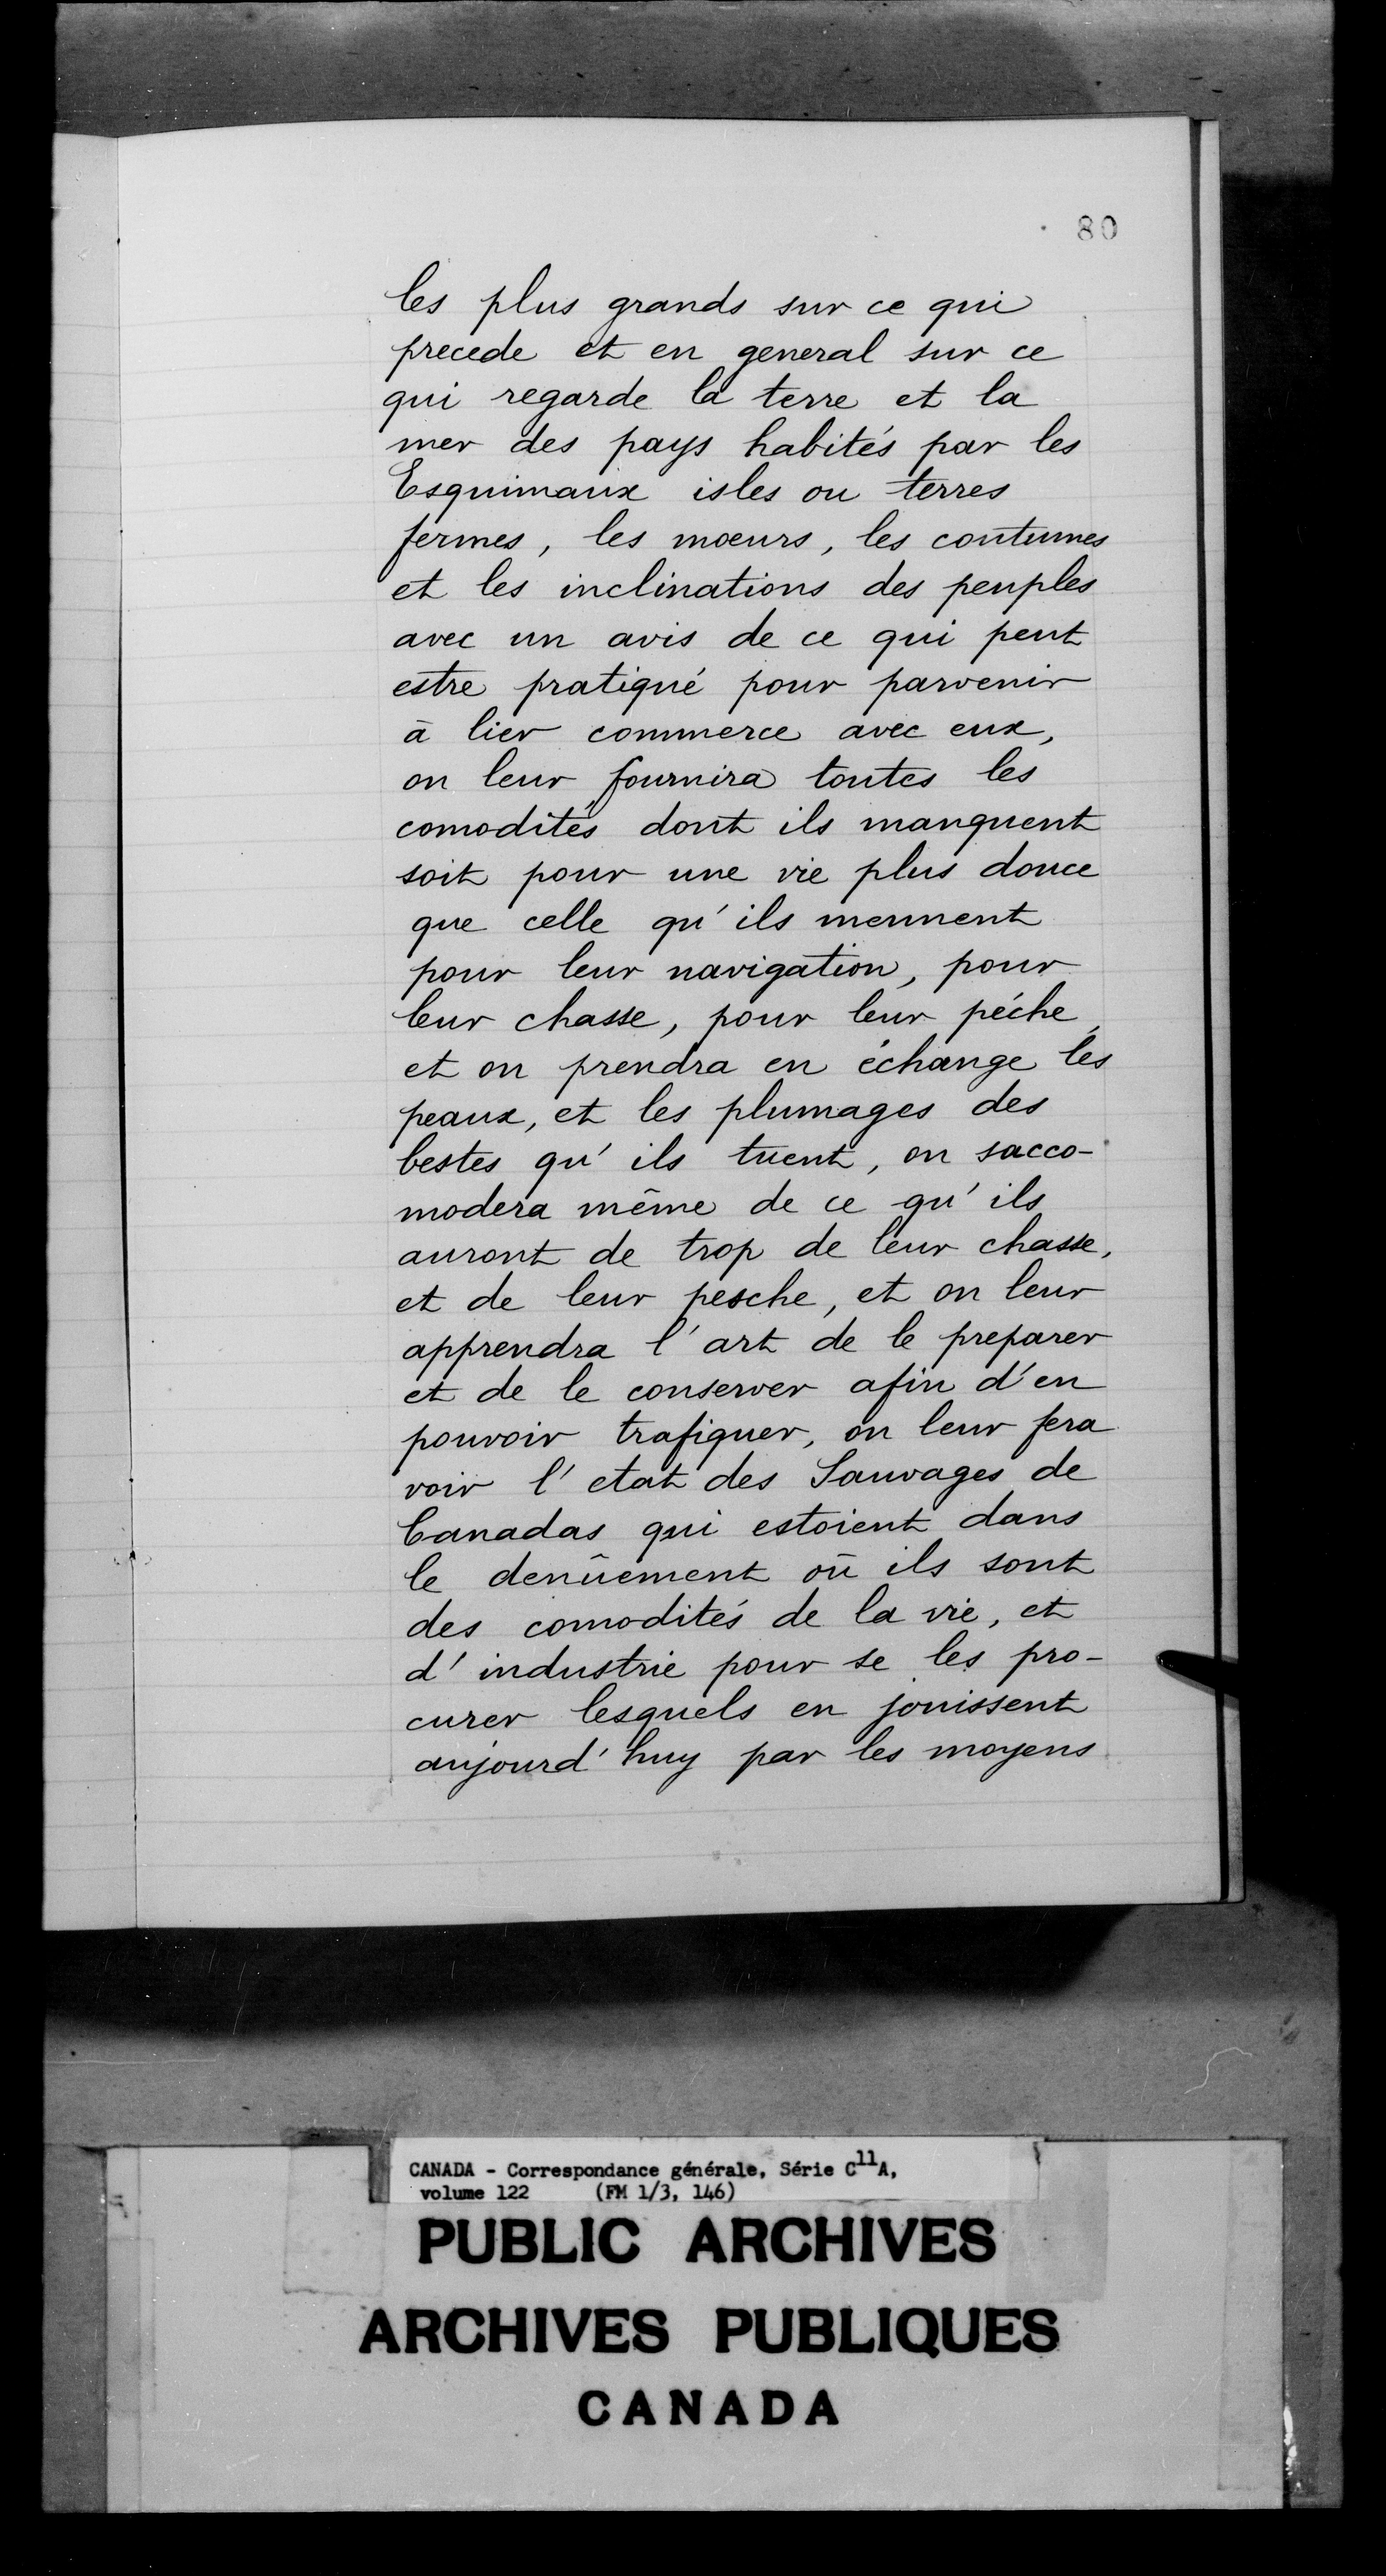 80
les plus grands sur ce qui
precede et en general sur ce
qui regarde la terre et la
mer des pays habités par les
Esquimaux isles ou terres
fermes, les mœurs, les coutumes
et les inclinations des peuples
avec un avis de ce qui peut
estre pratiqué pour parvenir
à lier commerce avec eux,
on leur fournira toutes les
comodités dont ils manquent
soit pour une vie plus douce
que celle qu'ils mennent
pour leur navigation, pour
leur chasse, pour leur péche,
et on prendra en échange les
peaux, et les plumages des
bestes qu'ils tuent, on sacco-
modera même de ce qu'ils
auront de trop de leur chasse,
et de leur pesche, et on leur
apprendra l'art de le preparer
et de le conserver afin d'en
pouvoir trafiquer, on leur fera
voir l'etat des Sauvages de
Canadas qui estoient dans
le denûement où ils sont
des comodités de la vie, et
d'industrie pour se les pro-
curer lesquels en jouissent
aujourd'huy par les moyens
CANADA - Correspondance générale, Série C11A,
volume 122 (FM 1/3, 146)
PUBLIC ARCHIVES
ARCHIVES PUBLIQUES
CANADA